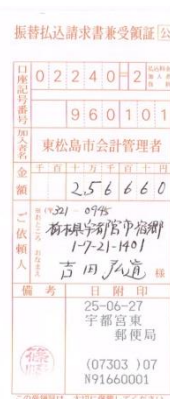 振替払込請求書兼受領証 公
口座記号番号 02240=2
960101
加入者名 東松島市会計管理者
金額 千百十万千百十円
256660
ご依頼人 おなまえ
〒321-0945
栃木県宇都宮市宿郷
1-7-21-1401
吉田弘道 様
備考 日附印
25-06-27
宇都宮東
郵便局
(07303)07
N91660001